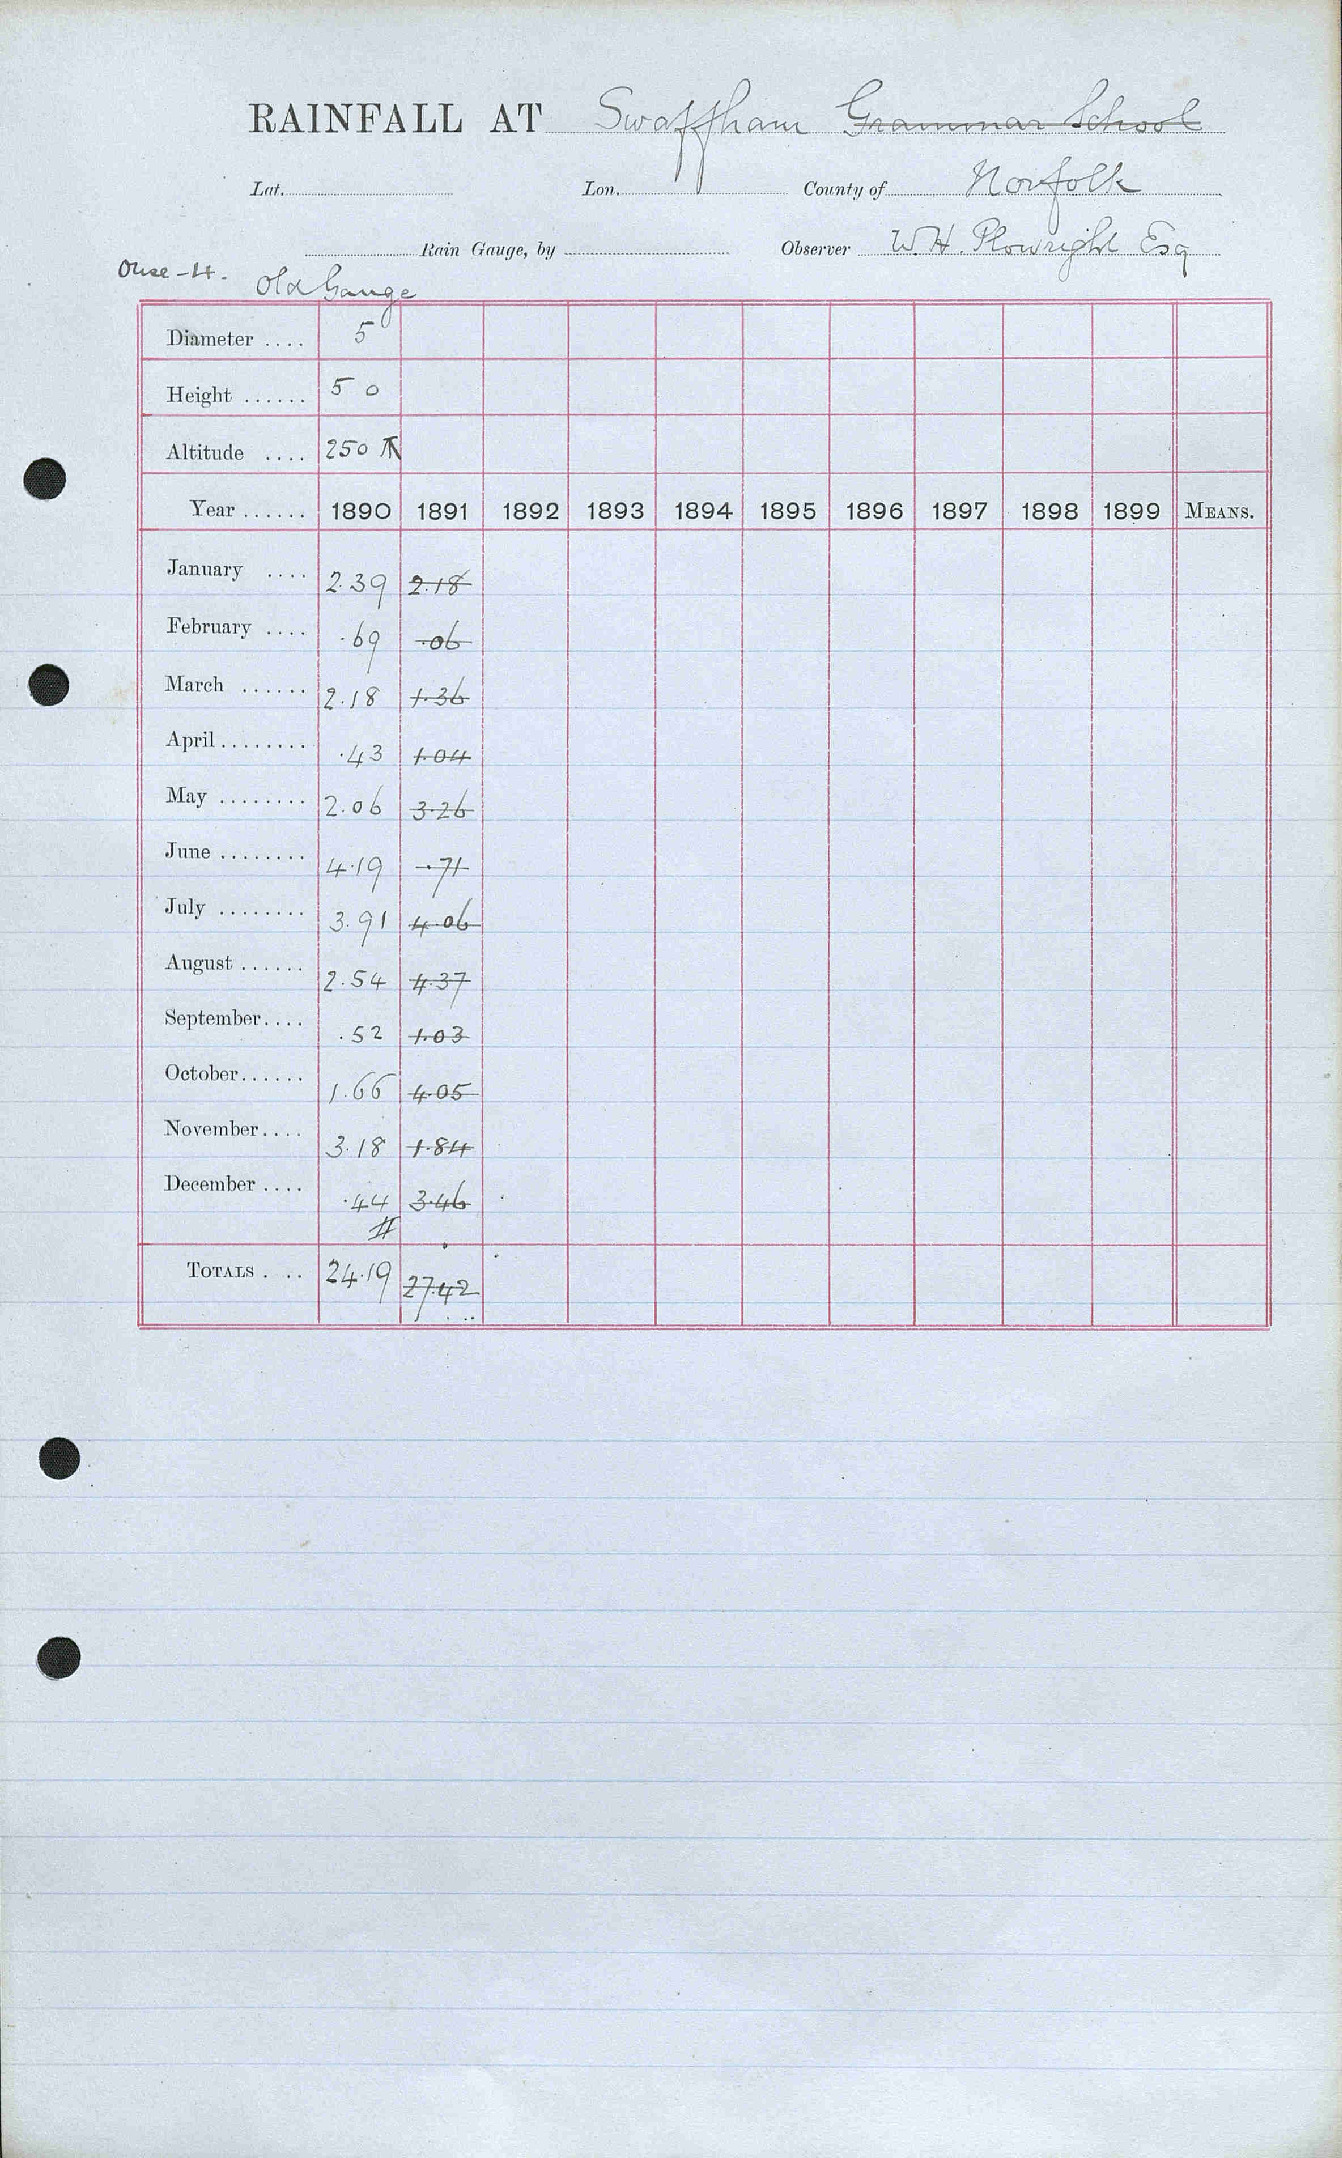 RAINFALL AT Swaffham Grammar School
Lat. Lon. County of Norfolk
Rain Gauge, by Observer W.H. Plowright Esq
Ouse-4. Old Gauge
Diameter .... 5
Height ...... 5 0
Altitude .... 250
Year ...... 1890 1891 1892 1893 1894 1895 1896 1897 1898 1899 MEANS.
January .... 2.39 2.18
February .... .69 .06
March ...... 2.18 1.36
April ........ .43 1.04
May ........ 2.06 3.26
June ........ 4.19 .71
July ........ 3.91 4.06
August ...... 2.54 4.37
September.... .52 1.03
October...... 1.66 4.05
November.... 3.18 1.84
December .... .44 3.46
TOTALS . .. 24.19 27.42